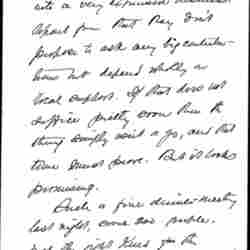 into a very expensive business
Apart from that Ray don't
propose to ask any big contribu-
tions but depend wholly on
local support. If that does not
suffice pretty soon then the
thing simply won't go, and that
time must prove. But it looks
promising.
Such a fine dinner-meeting
last night, some two people.
and the